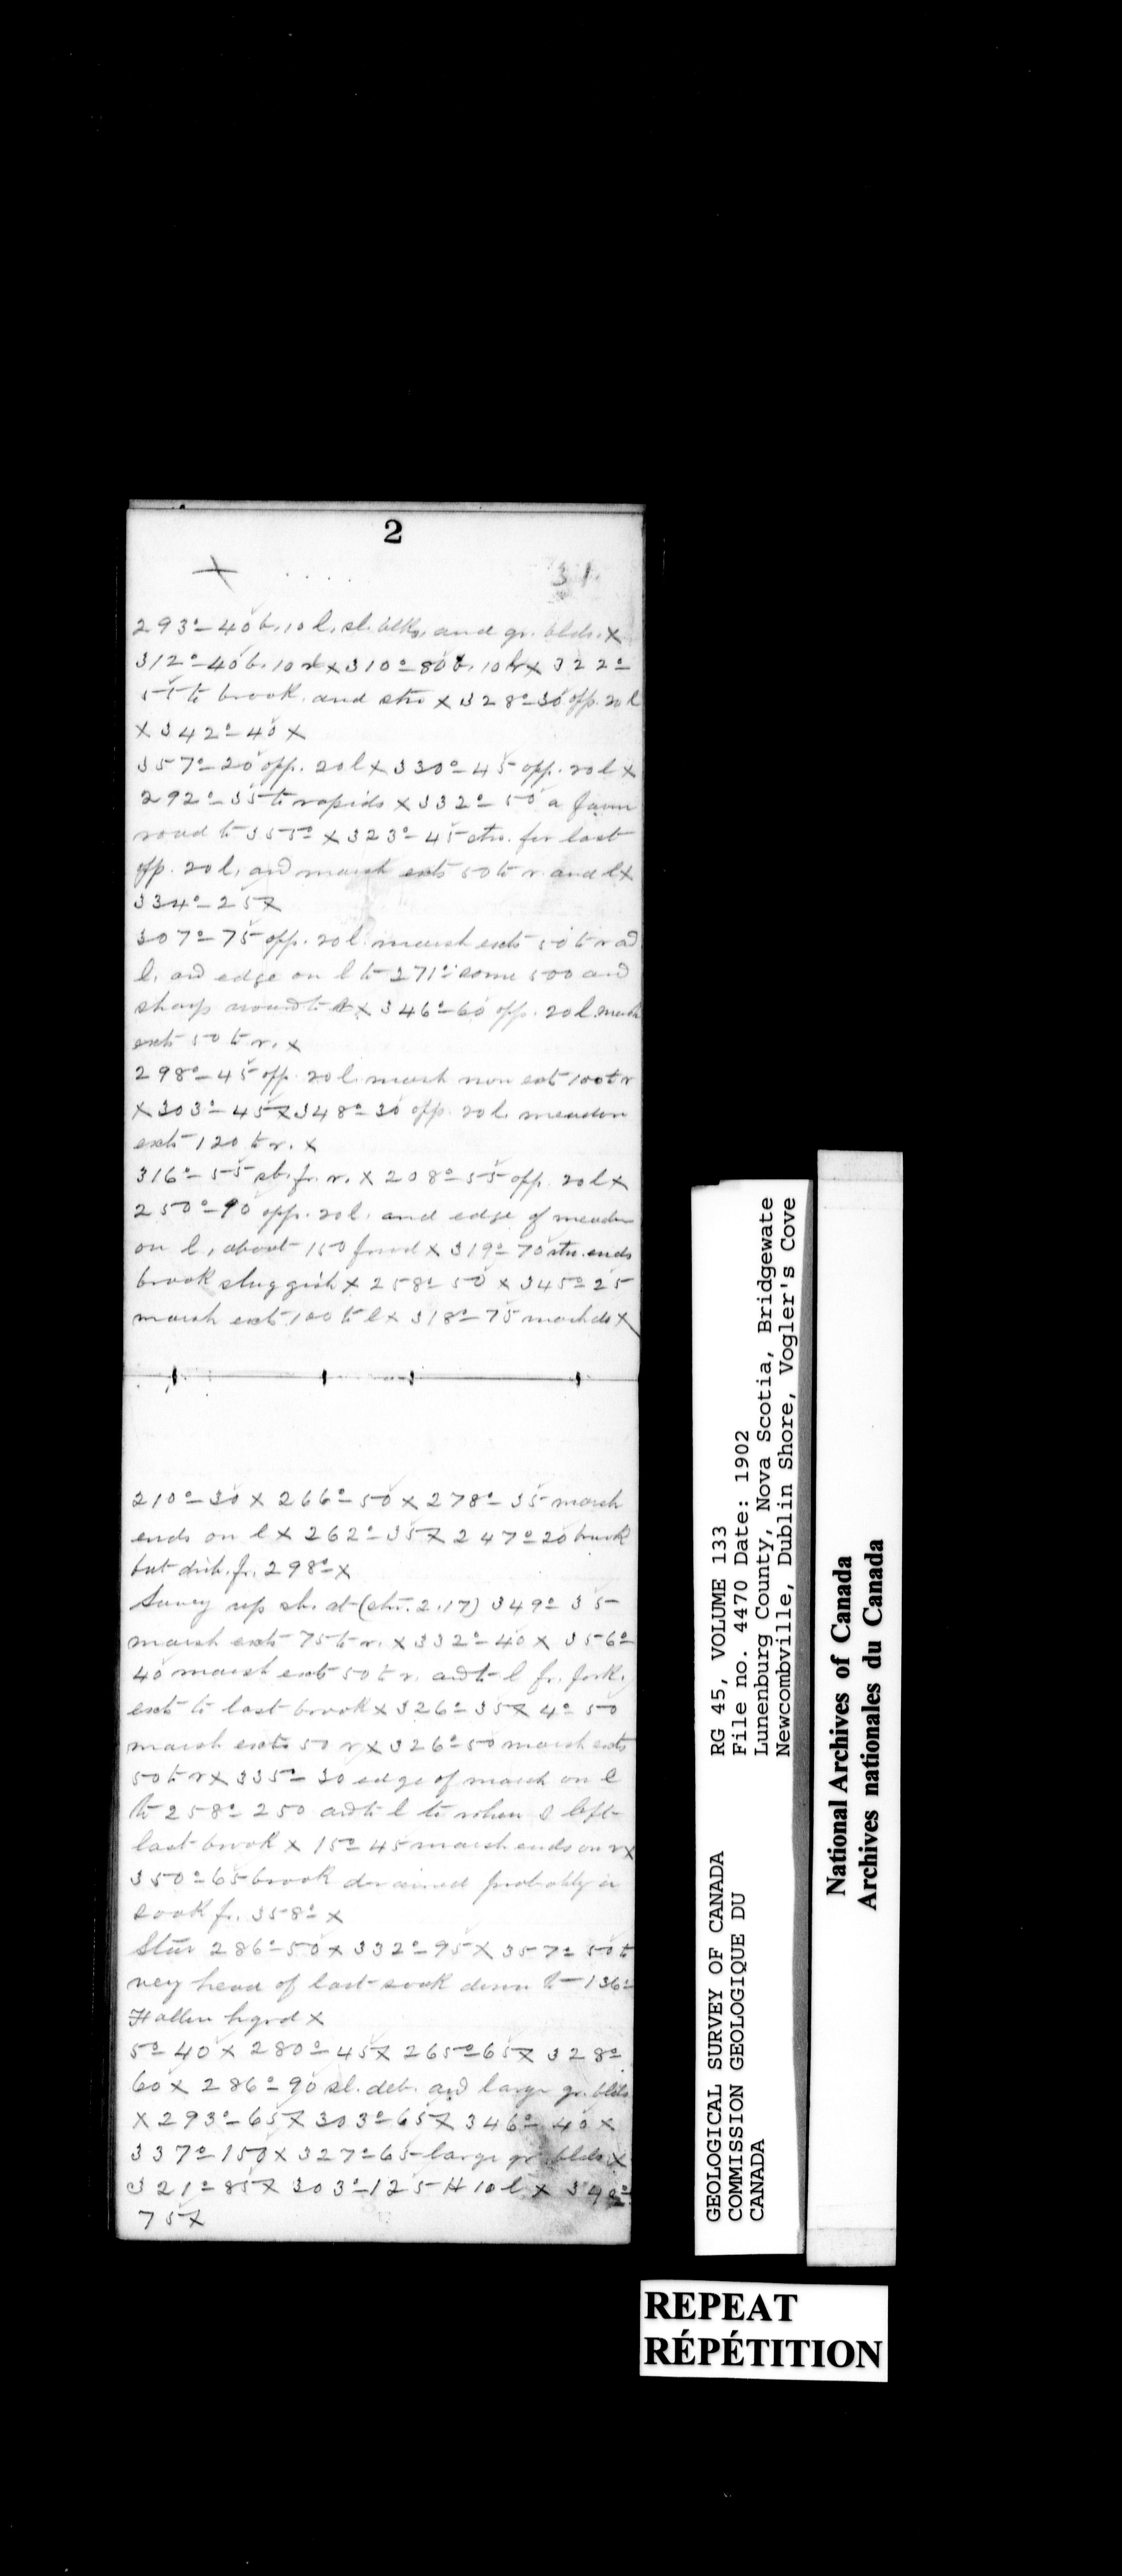 2
31
293°- 40 b. 10 l. sl. blks. and gr. blds. X
312°- 40 b. 10 r X 310°- 80 b. 10 X 322°-
55 to brook and str X 328°- 30 opp. 20 l
X 342°- 40 X
357°- 20 opp. 20 l X 330°- 45 opp. 20 l X
292°- 35 to rapids X 332°- 50 a farm
road to 355° X 323°- 45 str. for last
opp. 20 l, and marsh exts 50 to r. and l X
334°- 25 X
307°- 75 opp. 20 l. marsh exts 50 to r ad
l. and edge on l to 271° some 500 and
sharp round to X 346°- 60 opp. 20 l. marsh
exts 50 to r. X
298°- 45 opp. 20 l. marsh now ext 100 to r
X 303°- 45 X 348°- 30 opp. 20 l. meadow
exts 120 to r. X
316°- 55 sb. fr. r. X 208°- 55 opp. 20 l X
250°- 90 opp. 20 l. and edge of meadow
on l, about 150 forwd X 319°- 70 str. ends
brook sluggish X 258°- 50 X 345°- 25
marsh ext. 100 to l X 318°- 75 X
210°- 30 X 266°- 50 X 278°- 35 marsh
ends on l X 262°- 35 X 247°- 20 brook
but fr. 298°- X
Survey up sb. at (str. 2.17) 349°- 35
marsh exts 75 to r. X 332°- 40 X 356°-
40 marsh exts 50 to r. and to l fr. fork.
exts to last brook X 326°- 35 X 4°- 50
marsh exts 50 r X 326°- 50 marsh exts
50 to r X 335°- 30 edge of marsh on l
to 258°- 250 and to l to when I left
last brook X 15°- 45 marsh ends on r X
350°- 65 brook drained probably in
sook fr. 358°- X
Stur 286°- 50 X 332°- 95 X 357°- 50 to
very head of last sook down to 136°-
X
5°- 40 X 280°- 45 X 265°- 65 X 328°-
60 X 286°- 90 sl. deb. and large gr. blds
X 293°- 65 X 303°- 65 X 346°- 40 X
337°- 150 X 327°- 65 large gr. blds X
321°- 85 X 303°- 125 H 10 l X
75 X
GEOLOGICAL SURVEY OF CANADA
COMMISSION GEOLOGIQUE DU
CANADA
RG 45, VOLUME 133
File no. 4470 Date: 1902
Lunenburg County, Nova Scotia, Bridgewate
Newcombville, Dublin Shore, Vogler's Cove
National Archives of Canada
Archives nationales du Canada
REPEAT
RÉPÉTITION